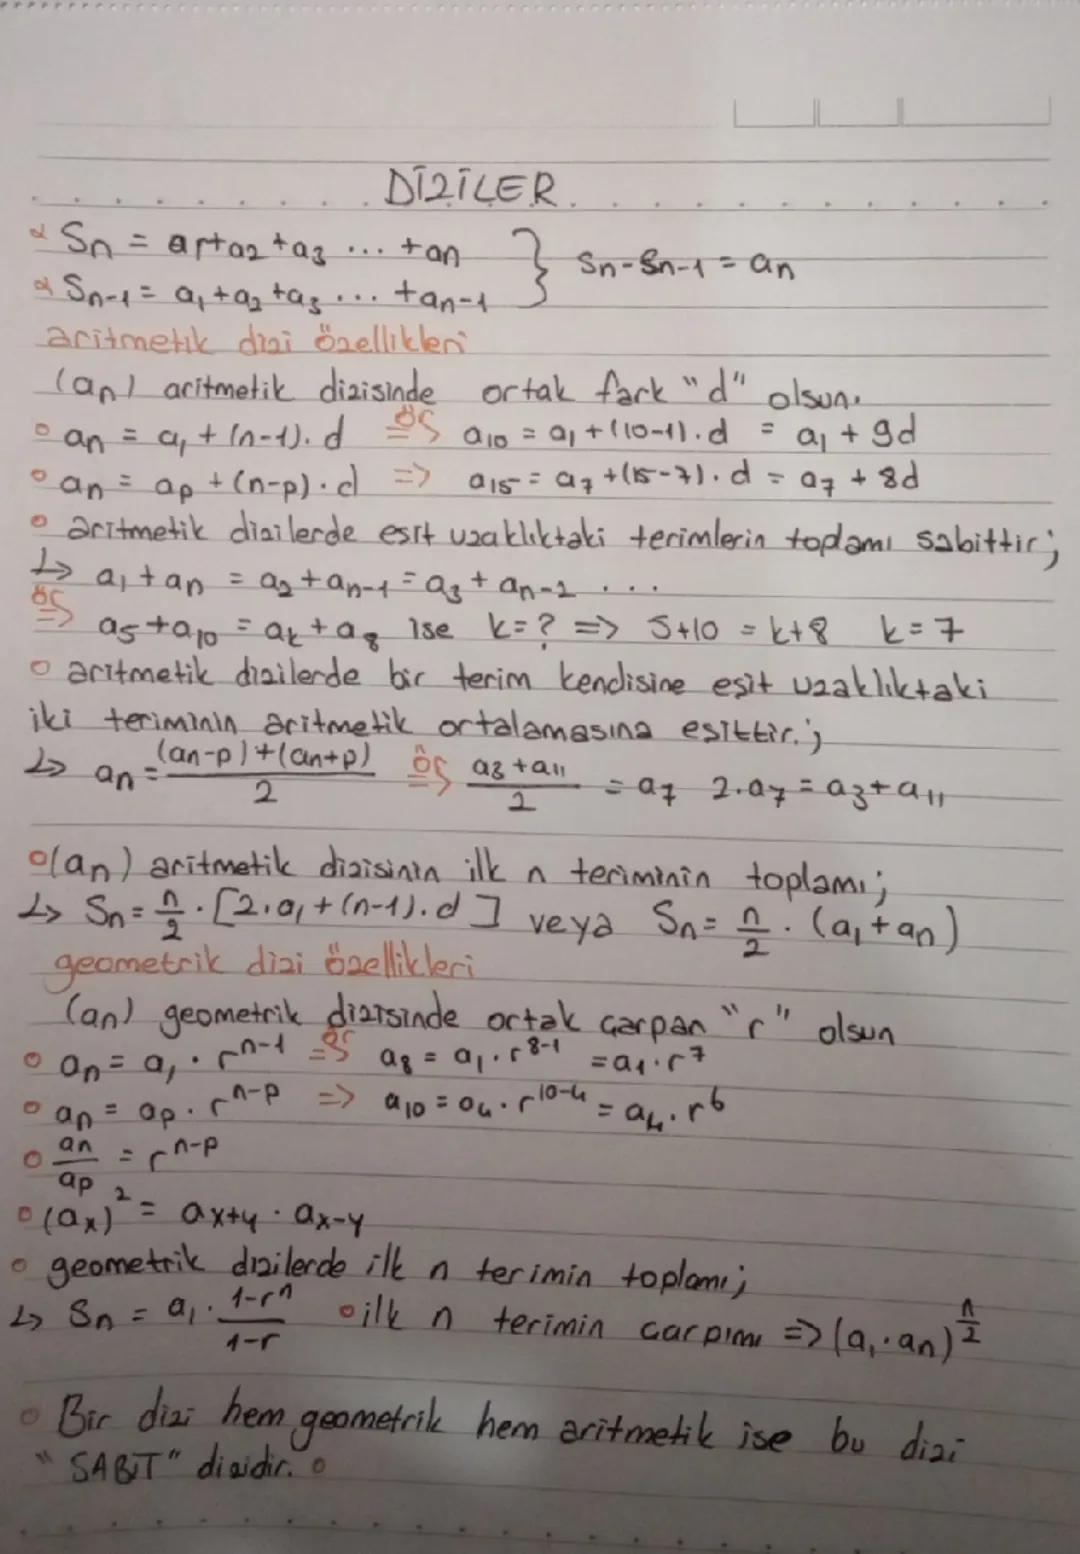 DİZİLER
Sn = a1+a2+a3 ... +an } Sn-Sn-1 = an
Sn-1 = a1+a2+a3 ... +an-1
aritmetik dizi özellikleri
(an) aritmetik dizisinde ortak fark "d" olsun.
an = a1 + (n-1).d ÖR=> a10 = a1+(10-1).d = a1 + 9d
an = ap + (n-p).d => a15 = a7+(15-7).d = a7 + 8d
aritmetik dizilerde eşit uzaklıktaki terimlerin toplamı sabittir;
↳ a1+an = a2+an-1 = a3+an-2 ...
ÖR=> a5+a10 = ak+a8 ise k=? => 5+10 = k+8 k=7
aritmetik dizilerde bir terim kendisine eşit uzaklıktaki
iki teriminin aritmetik ortalamasına eşittir.;
↳ an = (an-p)+(an+p)/2 ÖR=> a3+a11/2 = a7 2.a7 = a3+a11
(an) aritmetik dizisinin ilk n teriminin toplamı;
↳ Sn = n/2 . [2.a1+(n-1).d] veya Sn = n/2 . (a1+an)
geometrik dizi özellikleri
(an) geometrik dizisinde ortak çarpan "r" olsun
an = a1 . r^n-1 ÖR=> a8 = a1.r^8-1 = a1.r^7
an = ap . r^n-p => a10 = a4.r^10-4 = a4.r^6
an/ap = r^n-p
(ax)^2 = ax+y . ax-y
geometrik dizilerde ilk n terimin toplamı;
↳ Sn = a1 . 1-r^n/1-r ilk n terimin çarpımı => (a1.an)^n/2
Bir dizi hem geometrik hem aritmetik ise bu dizi
"SABİT" dizidir.